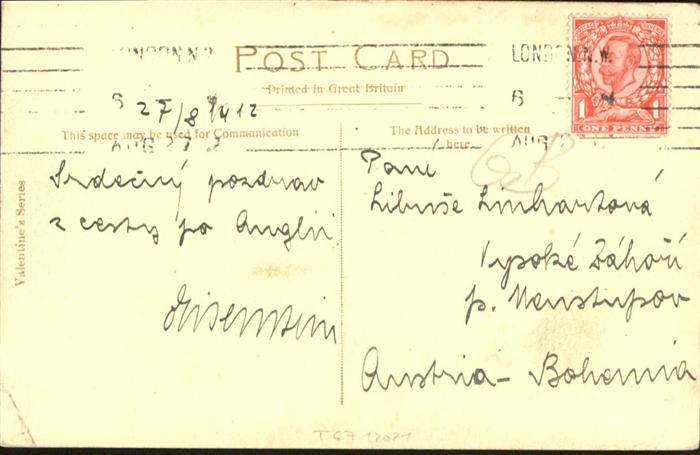 LONDON N.W.
POST CARD
LONDON.N.W.
Printed in Great Britain
6
27/8 1912
6
AUG 27
AUG
ONE PENNY
1 1
This space may be used for Communication
The Address to be written here
Valentine's Series
Srdečný pozdrav
z cesty po Anglii.
Paní
Libuše Linhartová
Vysoké Záhoří
p. Neustupov
Austria - Bohemia
T 67 12021